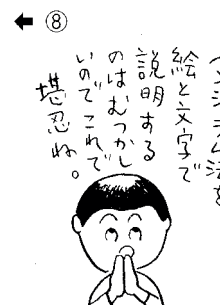 ← ⑧
絵と文字で
説明する
のはむつかし
いのでこれで
堪忍ね。